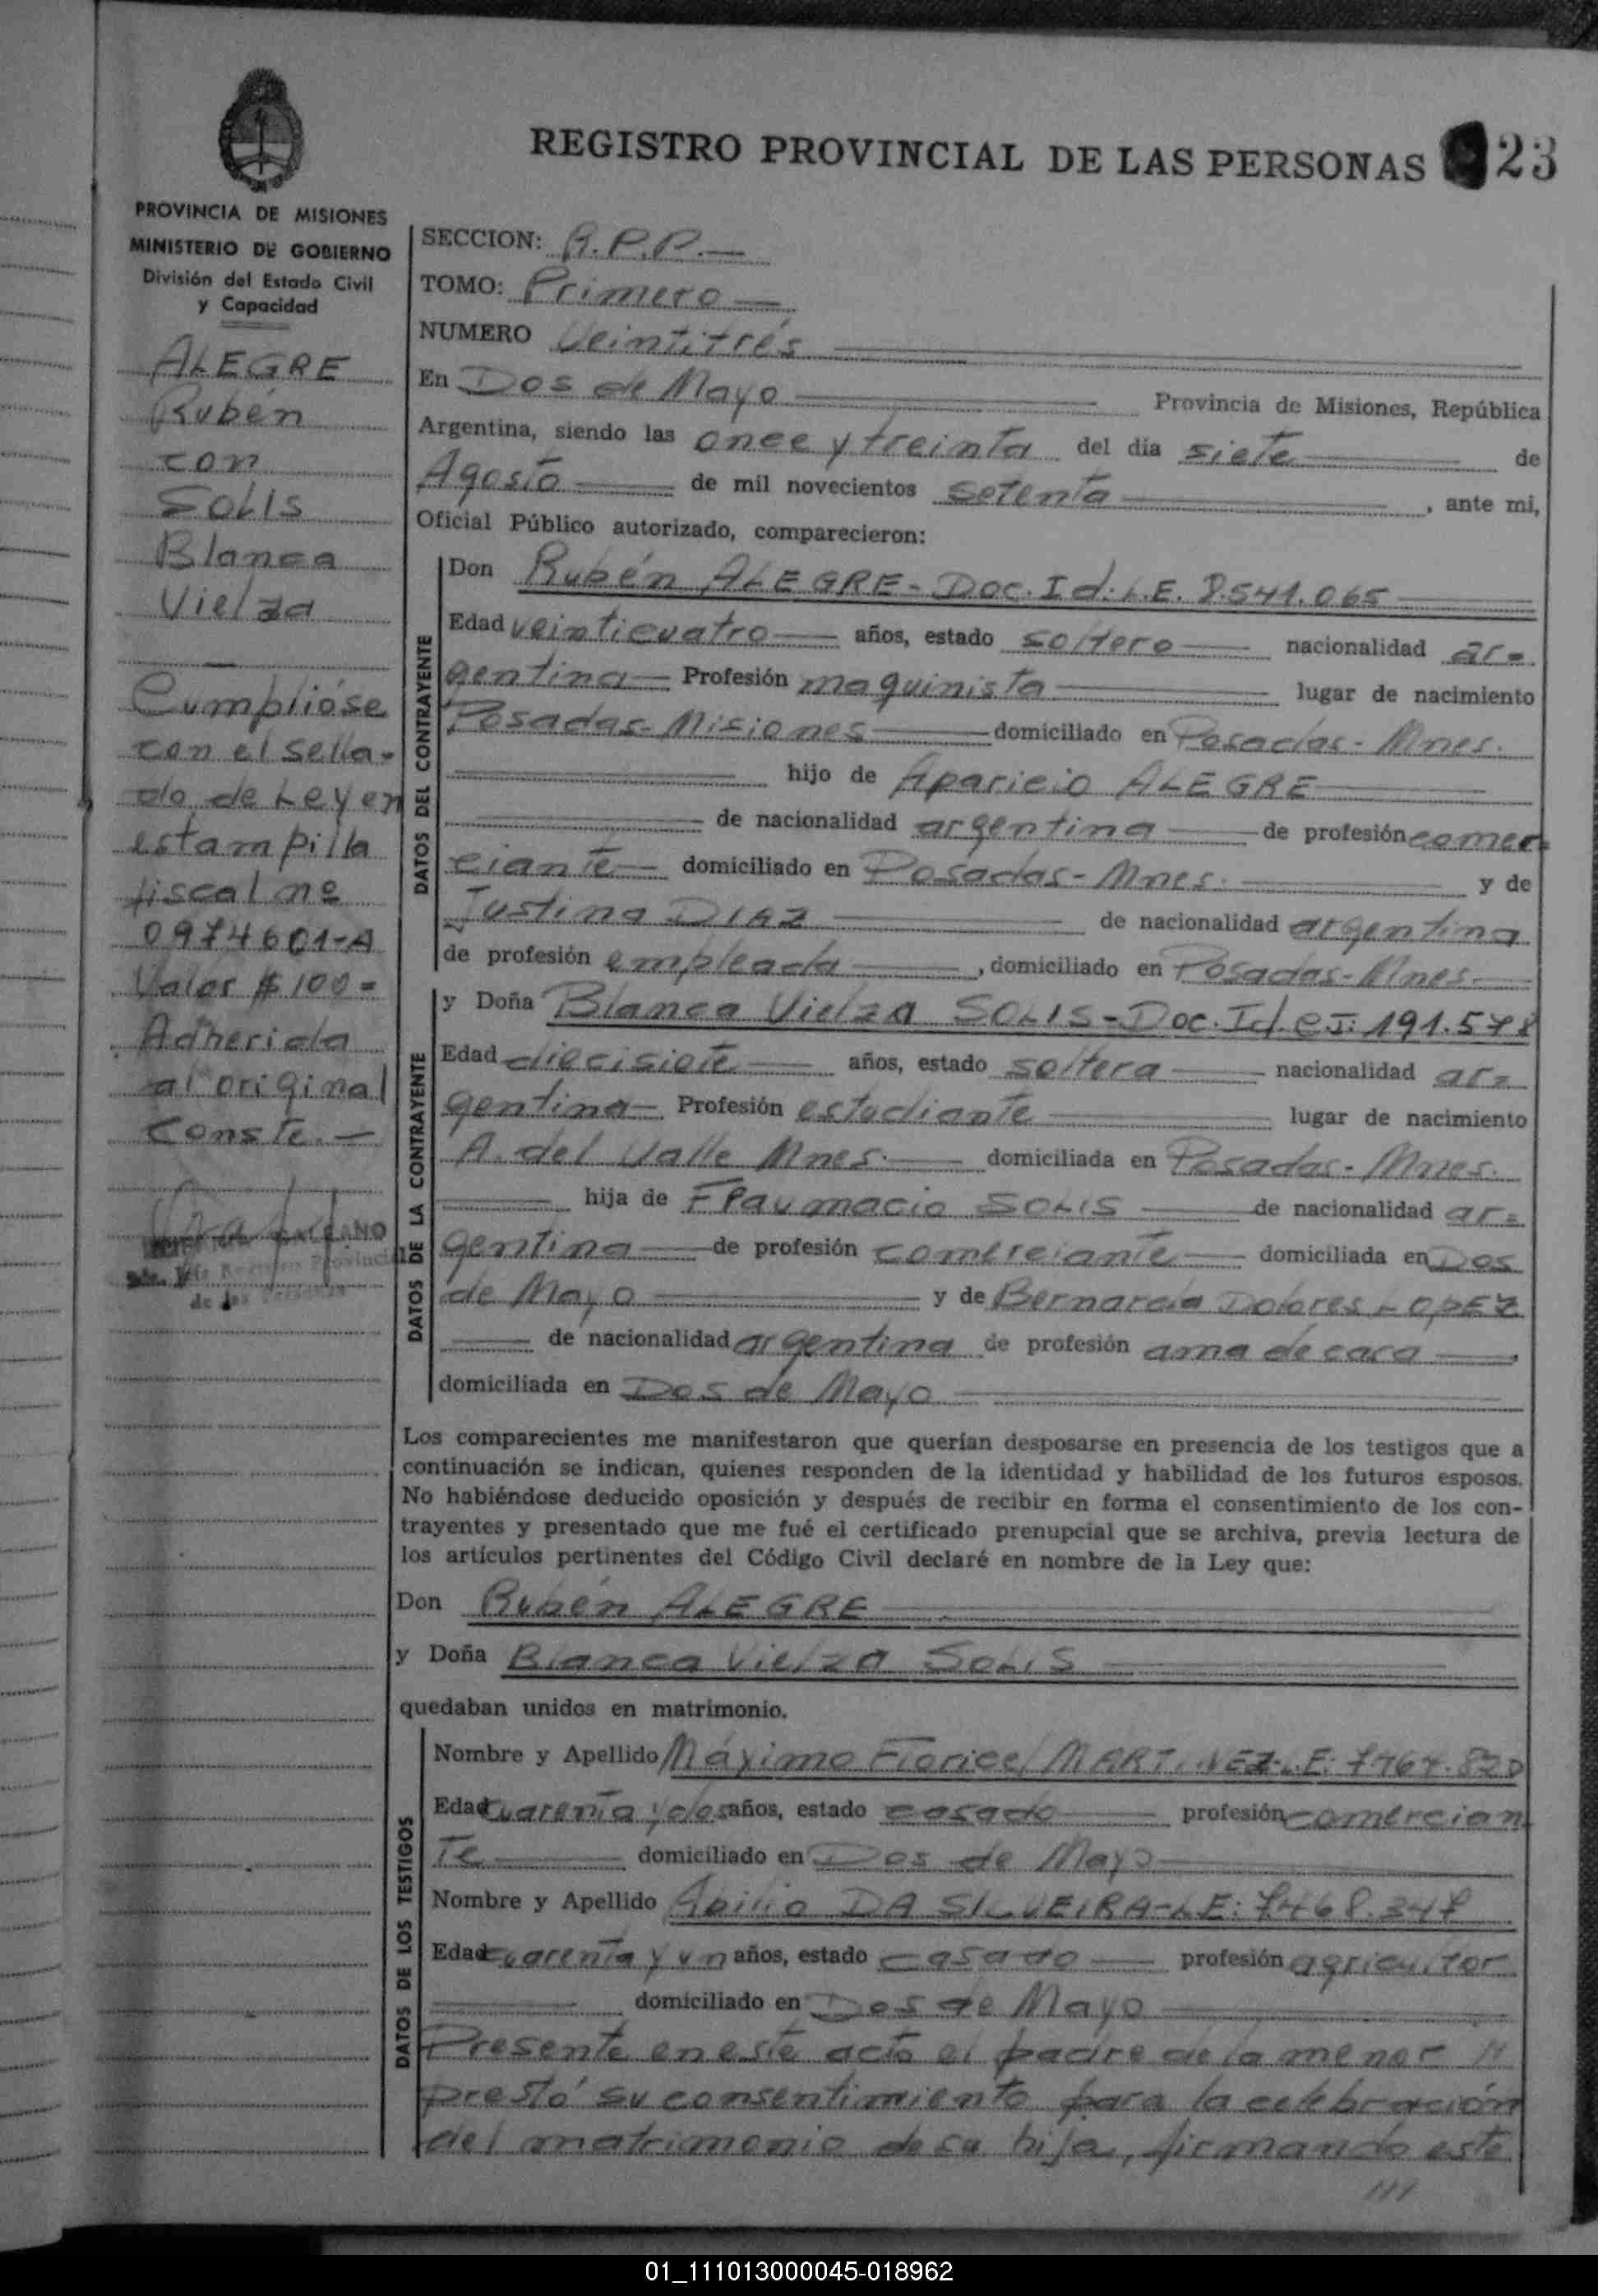 REGISTRO PROVINCIAL DE LAS PERSONAS 23
PROVINCIA DE MISIONES
MINISTERIO DE GOBIERNO
División del Estado Civil
y Capacidad
ALEGRE
Rubén
con
SOLIS
Blanca
Vielza
Cumplióse
con el sella-
do de Ley en
estampilla
fiscal nº
0974601-A
Valor $ 100=
Adherida
al original
Conste.—
SECCION: R.P.P.—
TOMO: Primero
NUMERO Veintitrés
En Dos de Mayo Provincia de Misiones, República
Argentina, siendo las once y treinta del dia siete de
Agosto de mil novecientos setenta, ante mi,
Oficial Público autorizado, comparecieron:
DATOS DEL CONTRAYENTE
Don Rubén ALEGRE-Doc. Id: L.E. 8.541.065
Edad veinticuatro años, estado soltero nacionalidad ar=
gentina Profesión maquinista lugar de nacimiento
Posadas-Misiones domiciliado en Posadas-Mnes.
hijo de Aparicio ALEGRE
de nacionalidad argentina de profesión comer=
ciante domiciliado en Posadas-Mnes. y de
Justina DIAZ de nacionalidad argentina
de profesión empleada, domiciliado en Posadas-Mnes.
DATOS DE LA CONTRAYENTE
y Doña Blanca Vielza SOLIS-Doc. Id. CI: 191.578
Edad diecisiete años, estado soltera nacionalidad ar=
gentina Profesión estudiante lugar de nacimiento
A. del Valle Mnes. domiciliada en Posadas-Mnes.
hija de SOLIS de nacionalidad ar=
gentina de profesión comerciante domiciliada en Dos
de Mayo y de Bernarda Dolores LOPEZ
de nacionalidad argentina de profesión ama de casa,
domiciliada en Dos de Mayo
Los comparecientes me manifestaron que querían desposarse en presencia de los testigos que a
continuación se indican, quienes responden de la identidad y habilidad de los futuros esposos.
No habiéndose deducido oposición y después de recibir en forma el consentimiento de los con-
trayentes y presentado que me fué el certificado prenupcial que se archiva, previa lectura de
los artículos pertinentes del Código Civil declaré en nombre de la Ley que:
Don Rubén ALEGRE
y Doña Blanca Vielza SOLIS
quedaban unidos en matrimonio.
DATOS DE LOS TESTIGOS
Nombre y Apellido Máximo MARTINEZ-L.E: 7464.820
Edad cuarenta y dos años, estado casado profesión comercian
te domiciliado en Dos de Mayo
Nombre y Apellido Abilio DA SILVEIRA-LE: 7.468.347
Edad cuarenta y un años, estado casado profesión agricultor
domiciliado en Dos de Mayo
Presente en este acto el padre de la menor
prestó su consentimiento para la celebración
del matrimonio de su hija, firmando este
///
01_111013000045-018962